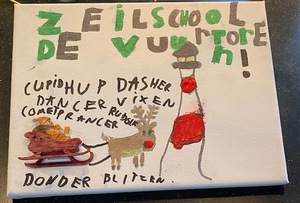 ZEILSCHOOL
DE VUURTOREN!
CUPID HUP DASHER
DANCER VIXEN
COMET PRANCER RUDOLF
DONDER BLITZEN.